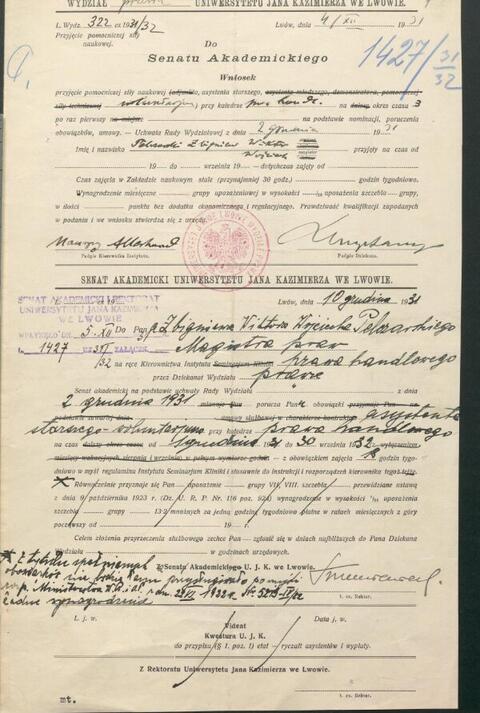 WYDZIAŁ prawa UNIWERSYTETU JANA KAZIMIERZA WE LWOWIE.
L. Wydz. 322 ex 1931/32 Lwów, dnia 4/XII 1931
Przyjęcie pomocniczej siły
naukowej.
1427/31/32
Do
Senatu Akademickiego
Wniosek
przyjęcie pomocniczej siły naukowej (adjunkta, asystenta starszego, asystenta młodszego, demonstratora, pomocniczej
siły technicznej) przy katedrze pr. handl. na dalszy okres czasu
po raz pierwszy na miejsce na podstawie nominacji, poruczenia
obowiązków, umowy. — Uchwała Rady Wydziałowej z dnia 2 grudnia 1931
Imię i nazwisko Zbigniew Wiktor Wojciech magister przyjęty na czas od
19 — do września 19 — dotychczas zajęty od
Czas zajęcia w Zakładzie naukowym stale (przynajmniej 30 godz.) godzin tygodniowo.
Wynagrodzenie miesięczne grupy uposażeniowej w wysokości uposażenia szczebla grupy,
w ilości punkta bez dodatku ekonomicznego i regulacyjnego. Prawdziwość kwalifikacji zapodanych
w podaniu i we wniosku stwierdza się z urzędu.
Maurycy Allerhand
Podpis Kierownika Instytutu. Podpis Dziekana.
SENAT AKADEMICKI UNIWERSYTETU JANA KAZIMIERZA WE LWOWIE.
SENAT AKADEMICKI I REKTORAT
UNIWERSYTETU JANA KAZIMIERZA
WE LWOWIE
Lwów, dnia 10 grudnia 1931
WPŁYNĘŁO DN. 5. XII
L. 1427 ZAŁĄCZ.
/32
Do Pana Zbigniewa Wiktora Wojciecha Pelczarskiego
Magistra praw
na ręce Kierownictwa Instytutu Seminarjum Kliniki prawa handlowego
przez Dziekanat Wydziału prawa
Senat akademicki na podstawie uchwały Rady Wydziału z dnia
2 grudnia 1931 mianuje Pana porucza Panu przyjmuje Pana na
podstawie zawartej dnia umowy służbowej w charakterze kontrakt. asystenta
starszego-voluntarjusza prawa handlowego
na dalszy okres czasu 1 grudnia 31 do 30 września 1932 z wyłączeniem
miesięcy wakacyjnych sierpnia i września w pełnym wymiarze godzin — z obowiązkiem zajęć godzin tygo-
dniowo w myśl regulaminu Instytutu Seminarjum Kliniki i stosownie do instrukcji i rozporządzeń kierownika tegoż tejże.
Równocześnie przyznaje się Pan uposażenie — grupy VII/VIII szczebla — przewidziane ustawą
z dnia 9 października 1923 r. (Dz. U. R. P. Nr. 116 poz. 924) wynagrodzenie w wysokości uposażenia
szczebla grupy 132 mnożnas za jedną godzinę tygodniowo płatne w ratach miesięcznych z góry
począwszy od 19 r.
Celem złożenia przyrzeczenia służbowego zechce Pan — zgłosić się w dniach najbliższych do Pana Dziekana
Wydziału w godzinach urzędowych.
Z Senatu Akademickiego U. J. K. we Lwowie.
z tytułu spełnianych
obowiązków
p. Ministerstwa W.R. i O.P. z dn. 1932
żadne wynagrodzenie
t. cz. Rektor.
L. j. w. Data j. w.
Videat
Kwestura U. J. K.
do przypisu (§ 1. poz. 1) etat — ryczałt asystentów i wypłaty.
Z Rektoratu Uniwersytetu Jana Kazimierza we Lwowie.
t. cz. Rektor.
mt.